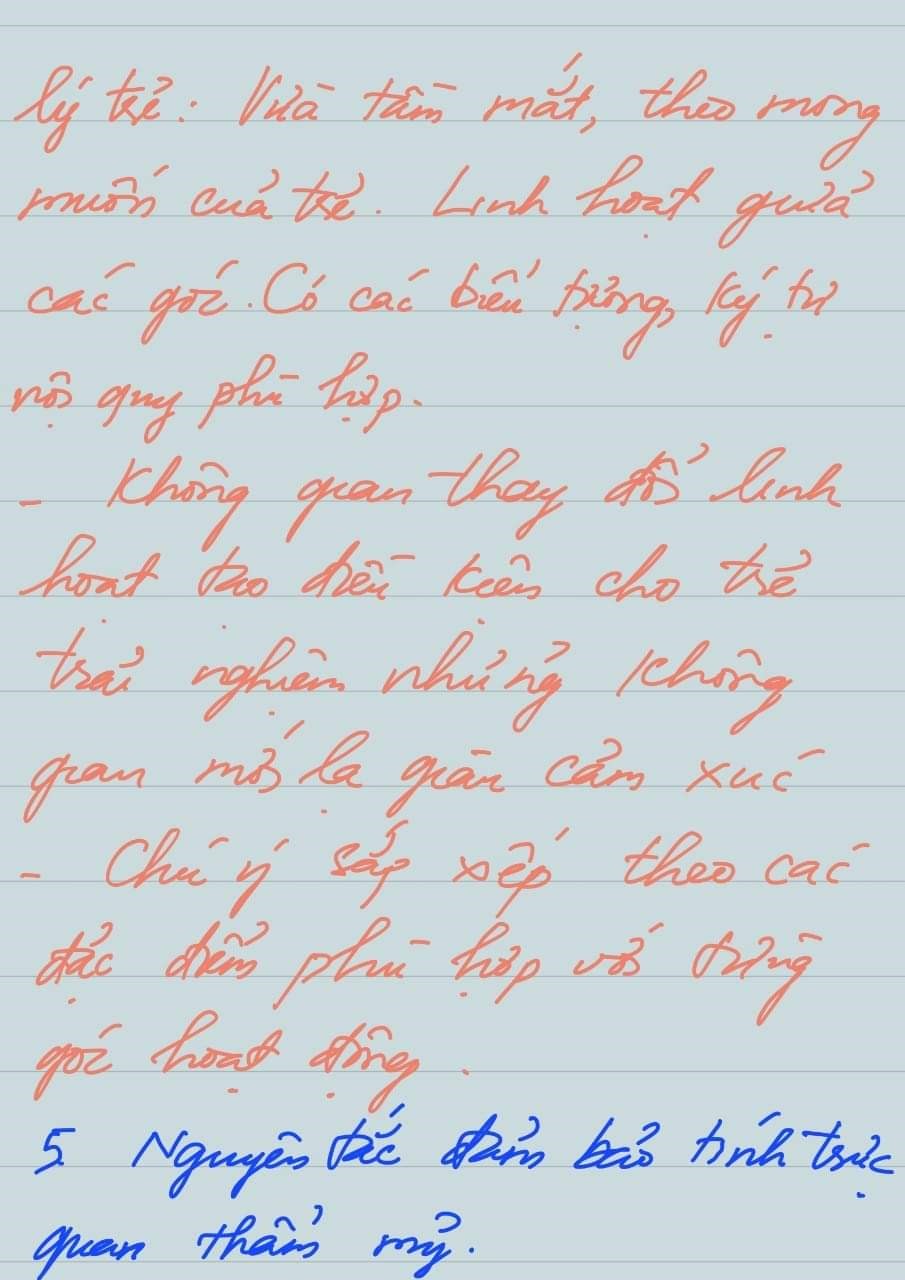 lý trẻ: Vừa tầm mắt, theo mong
muốn của trẻ. Linh hoạt giữa
các góc. Có các biểu tượng, ký tự
nội quy phù hợp.
- Không gian thay đổi linh
hoạt tạo điều kiện cho trẻ
trải nghiệm những không
gian mới lạ giàu cảm xúc
- Chú ý sắp xếp theo các
đặc điểm phù hợp với từng
góc hoạt động.
5 Nguyên tắc đảm bảo tính trực
quan thẩm mỹ.